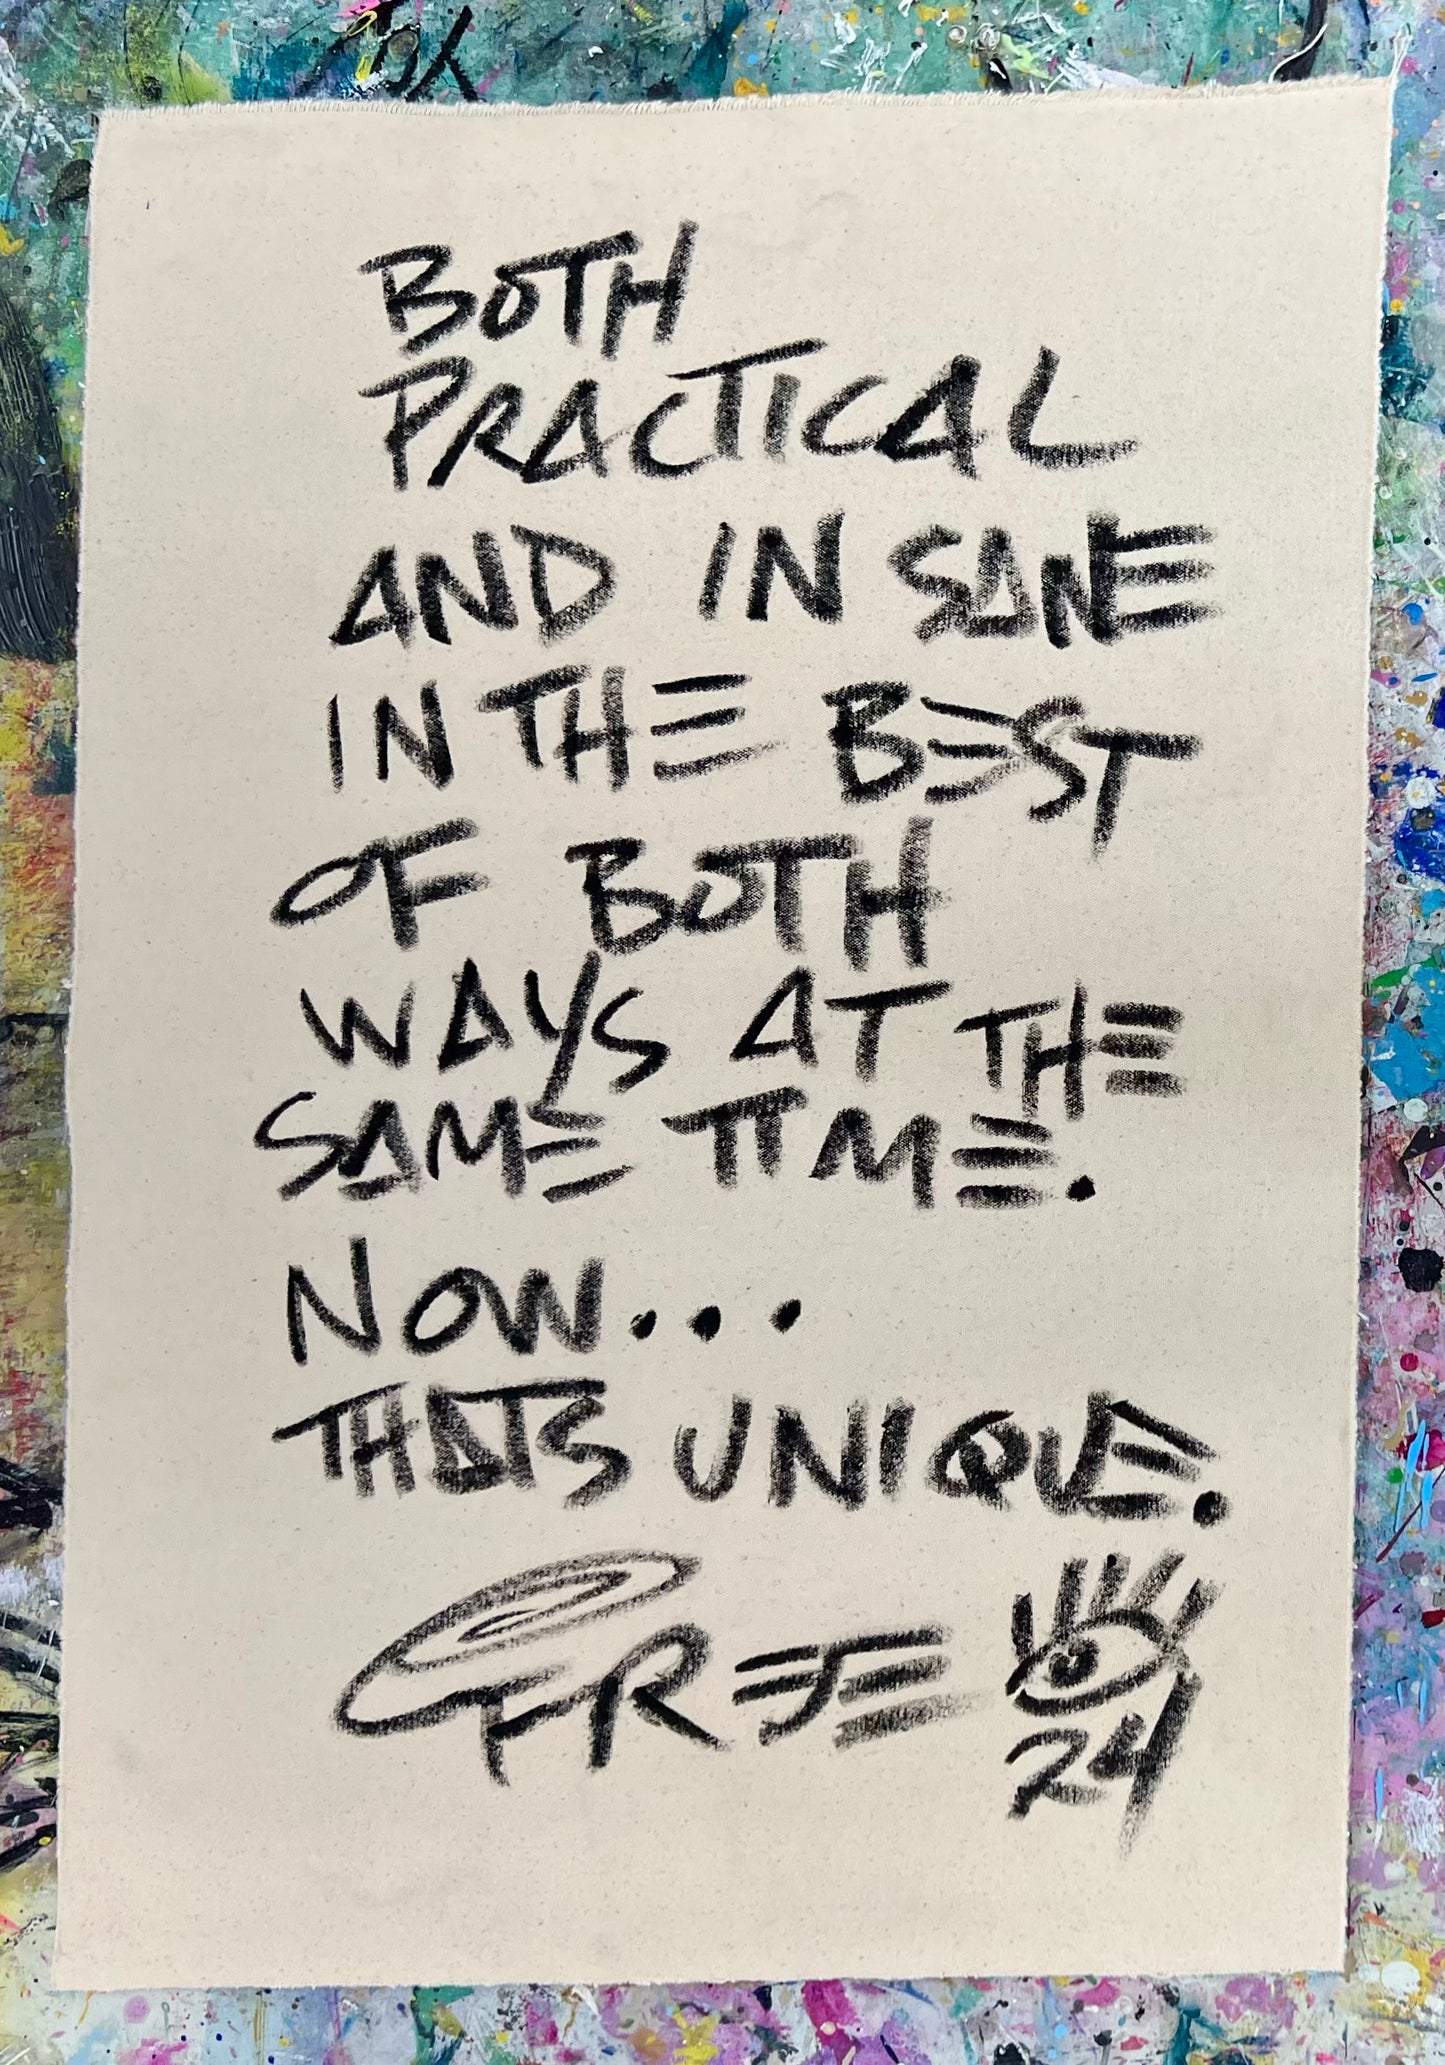 BOTH
PRACTICAL
AND IN SANE
IN THE BEST
OF BOTH
WAYS AT THE
SAME TIME.
NOW...
THATS UNIQUE.
24